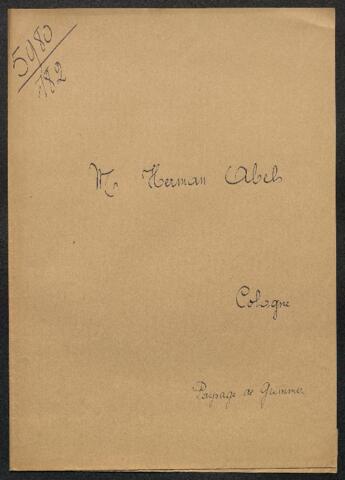 5980
182
M Herman Abels
Cologne
Paysage de Grimmer